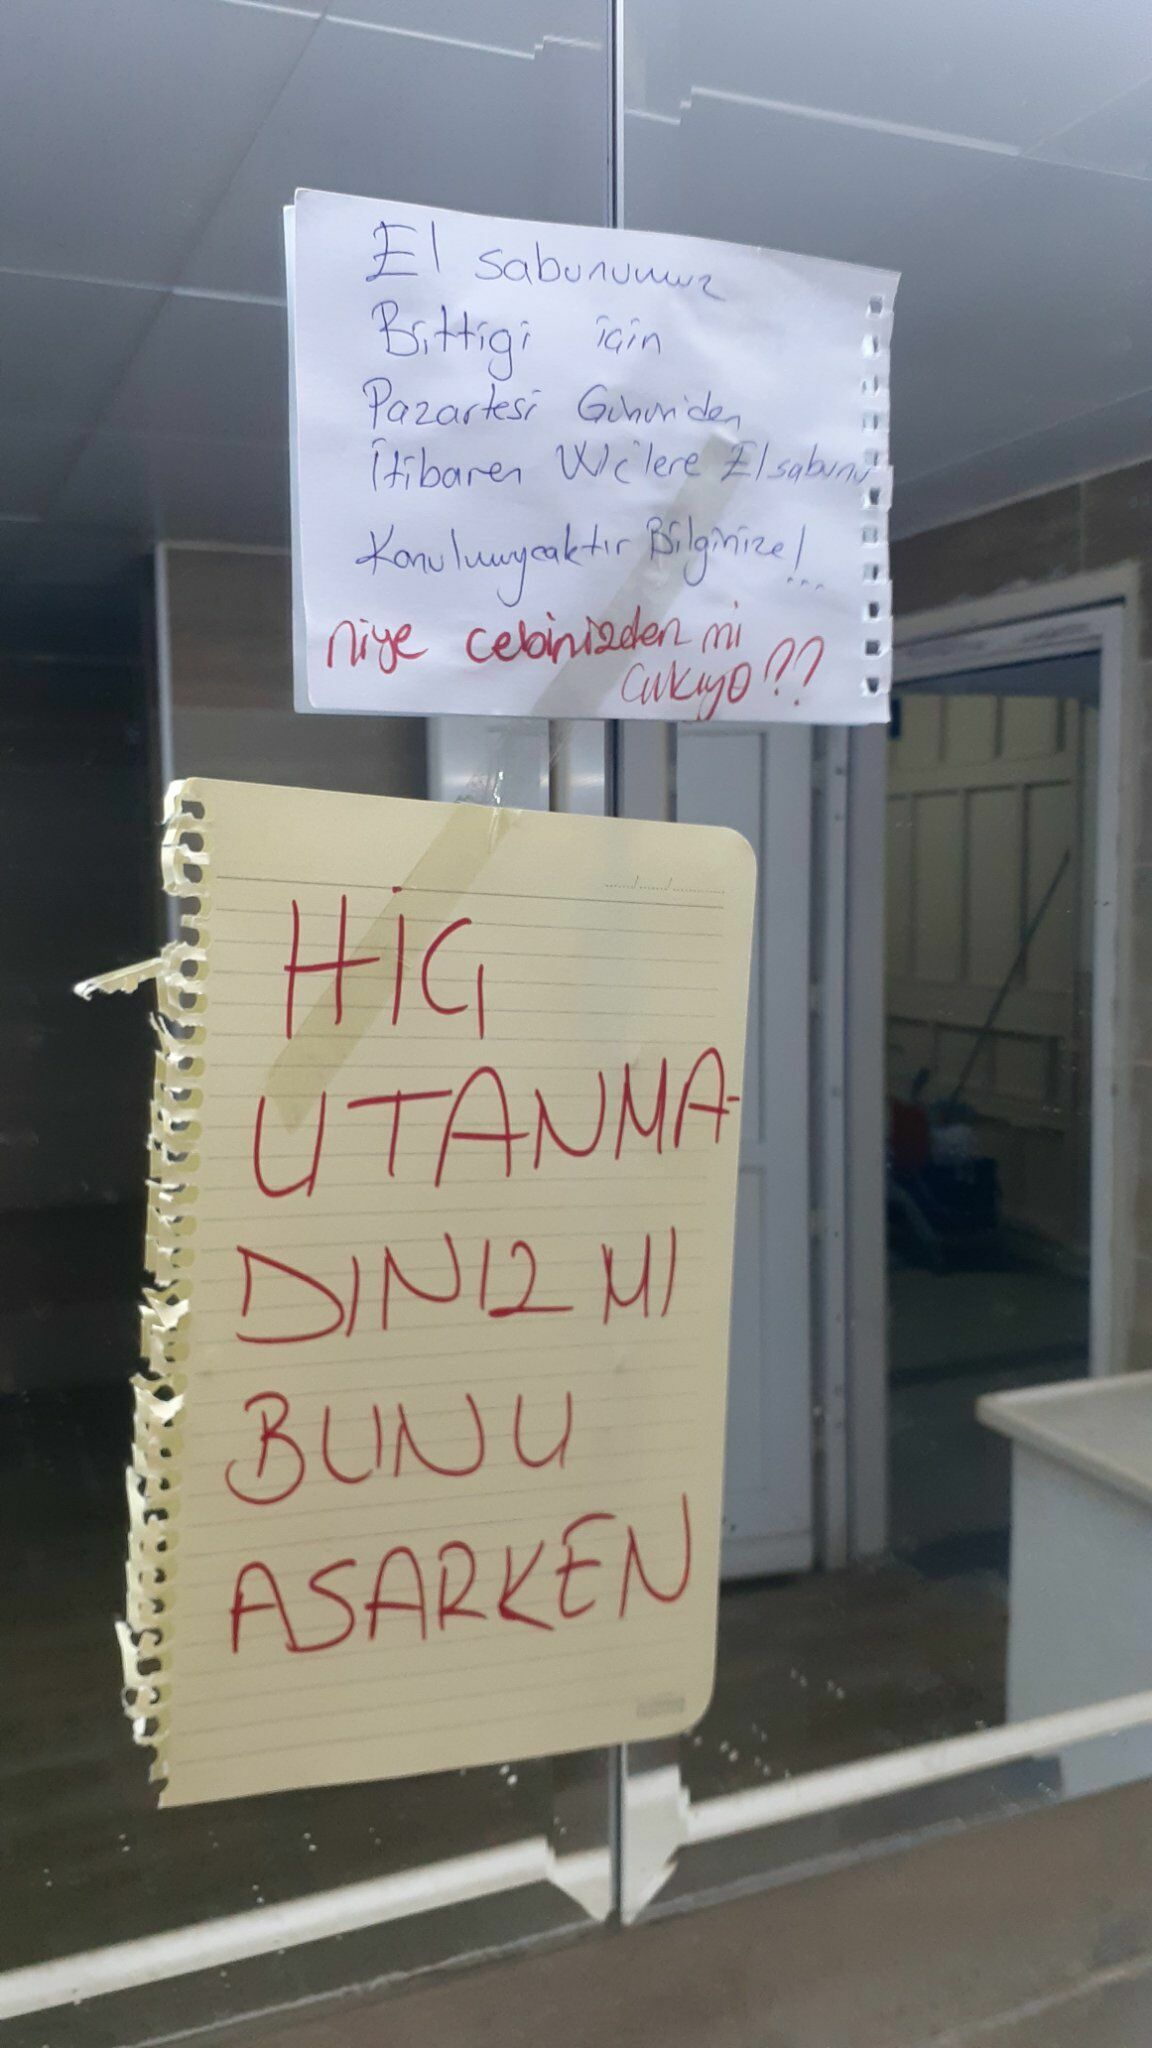 El sabunumuz
Bittigi için
Pazartesi Gününden
İtibaren Wc'lere El sabunu
Konulmuycaktır Bilginize!...
niye cebinizden mi
çıkıyo??
HİÇ
UTANMA-
DINIZ MI
BUNU
ASARKEN